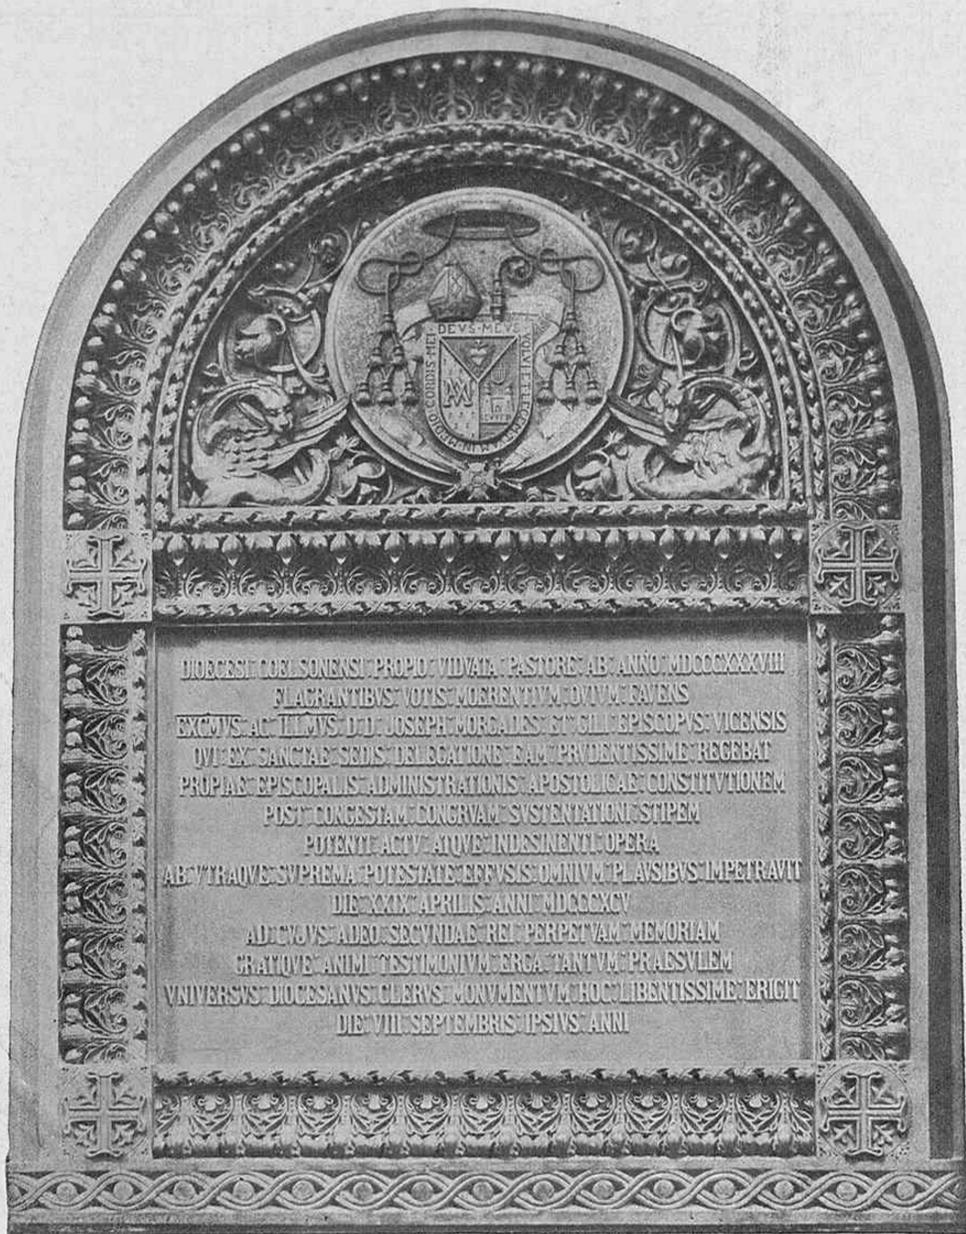 DEVS·MEVS
IN·MEDIO·CORDIS·MEI
DIOECESI COELSONENSI PROPIO VIDVATA PASTORE AB ANNO MDCCCXXXVIII
FLAGRANTIBVS VOTIS MOERENTIVM OVIVM FAVENS
EXCMVS AC ILLMVS D.D. JOSEPH MORGADES ET GILI EPISCOPVS VICENSIS
QVI EX SANCTAE SEDIS DELEGATIONE EAM PRVDENTISSIME REGEBAT
PROPIAE EPISCOPALIS ADMINISTRATIONIS APOSTOLICAE CONSTITVTIONEM
POST CONGESTAM CONGRVAM SVSTENTATIONI STIPEM
POTENTI ACTV ATQVE INDESINENTI OPERA
AB VTRAQVE SVPREMA POTESTATE EFFVSIS OMNIVM PLAVSIBVS IMPETRAVIT
DIE XXIX APRILIS ANNI MDCCCXCV
AD CVJVS ADEO SECVNDAE REI PERPETVAM MEMORIAM
GRATIQVE ANIMI TESTIMONIVM ERGA TANTVM PRAESVLEM
VNIVERSVS DIOCESANVS CLERVS MONVMENTVM HOC LIBENTISSIME ERIGIT
DIE VIII SEPTEMBRIS IPSIVS ANNI